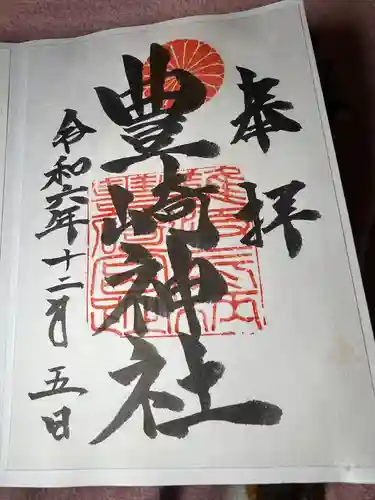 奉拝
豊崎神社
令和六年十二月五日